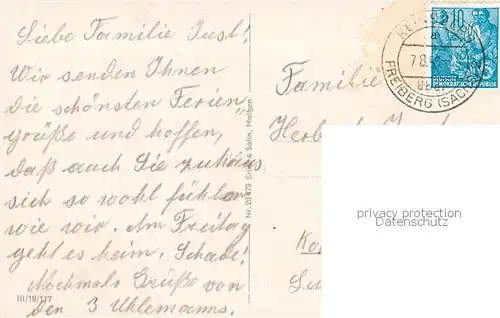 Liebe Familie Just!
Wir senden Ihnen
die schönsten Ferien
grüße und hoffen,
daß auch Sie zuhaus
sich so wohl fühlen
wie wir. Am Freitag
geht es heim. Schade!
Nochmals Grüße von
den 3 Uhlemanns.
III/18/117
Nr. 20479 Brück & Sohn, Meißen
Familie
10
DEUTSCHE
DEMOKRATISCHE REPUBLIK
7.8.
über
FREIBERG (SACHS)
privacy protection
Datenschutz